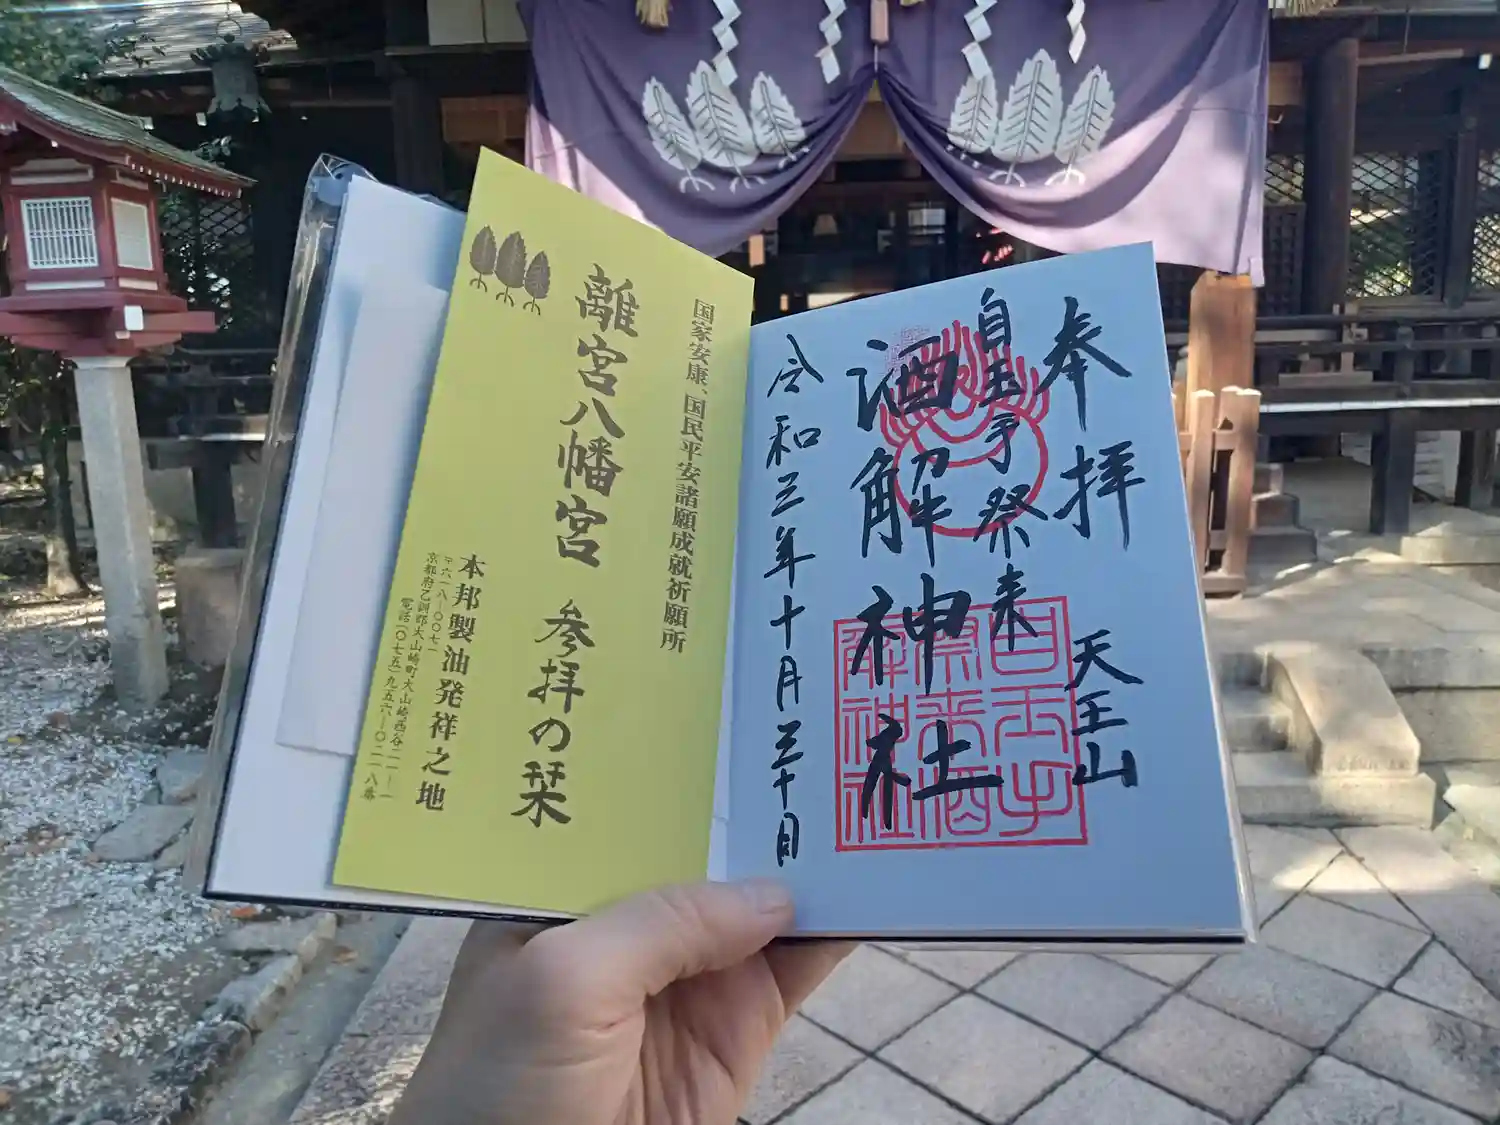 国家安康、国民平安諸願成就祈願所
離宮八幡宮 参拝の栞
本邦製油発祥之地
〒六一八―〇〇七一
京都府乙訓郡大山崎町大山崎西谷二一―一
電話(〇七五)九五六―〇二一八番
奉拝 天王山
自玉手祭来
酒解神社
令和三年十月三十日
自玉手
祭来酒
解神社